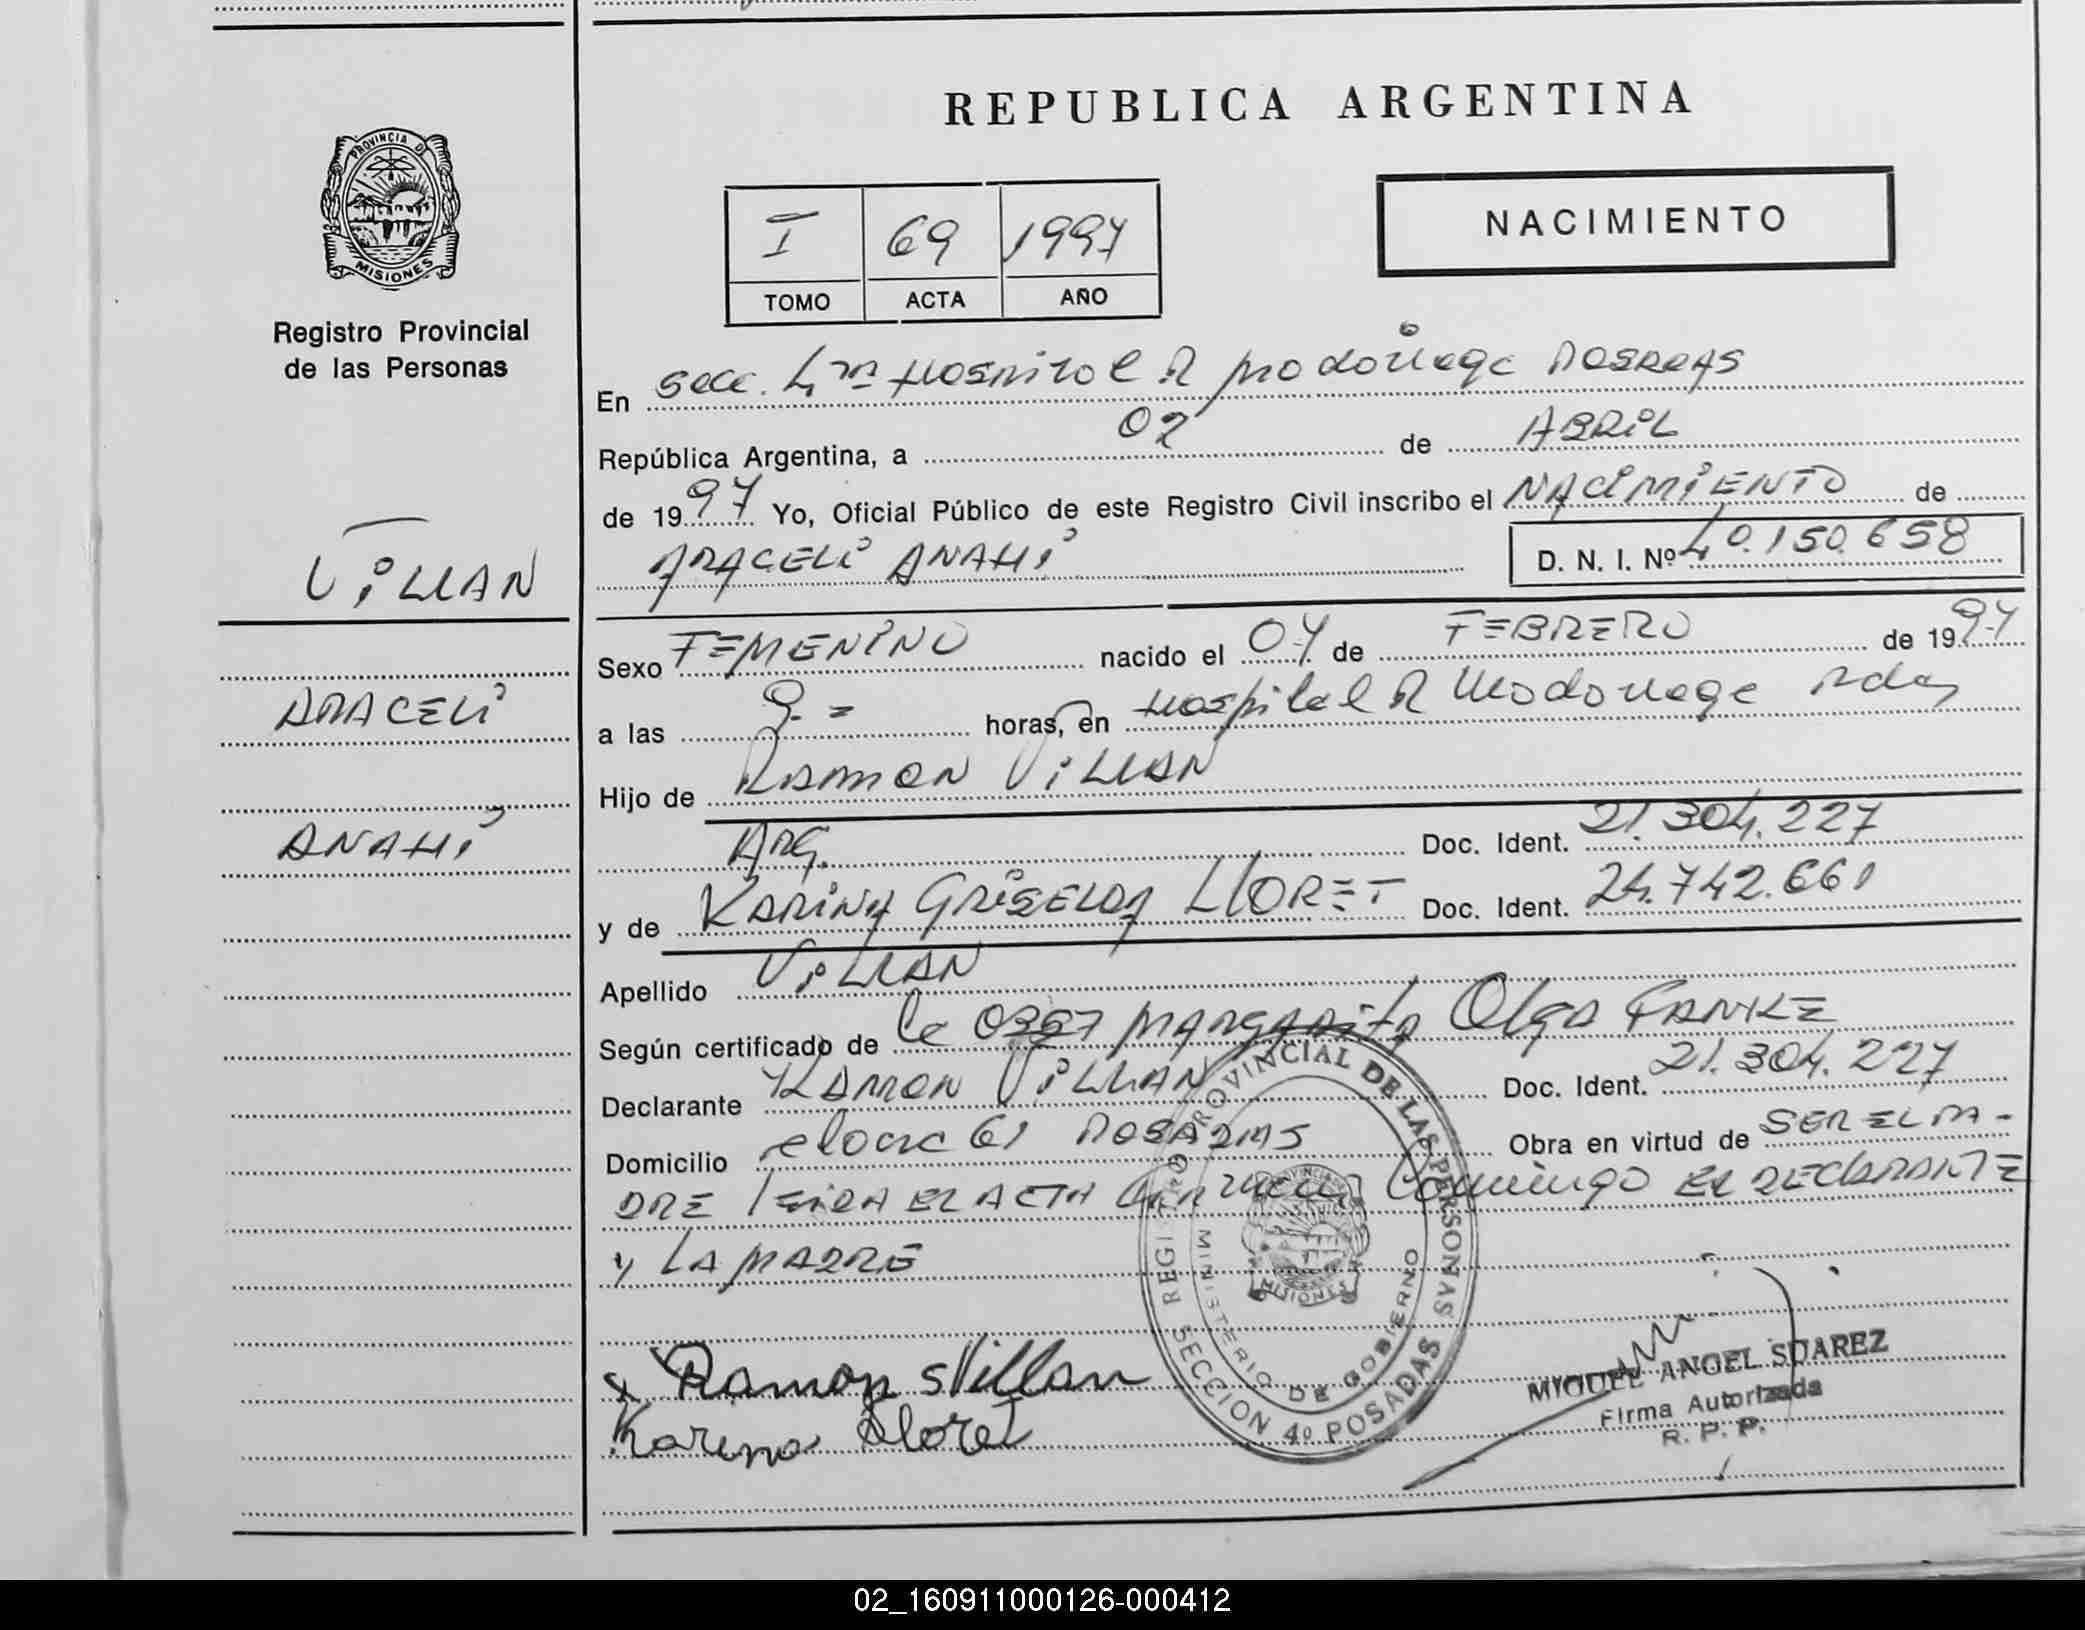 REPUBLICA ARGENTINA
PROVINCIA DE
MISIONES
Registro Provincial
de las Personas
NACIMIENTO
I 69 1997
TOMO ACTA AÑO
En secc. 4ta Hospital R Madariaga Posadas
República Argentina, a 02 de ABRIL
de 1997 Yo, Oficial Público de este Registro Civil inscribo el NACIMIENTO de
ARACELI ANAHI D. N. I. Nº 40.150.658
VILLAN
ARACELI
ANAHI
Sexo FEMENINO nacido el 04 de FEBRERO de 1997
a las 9.= horas, en Hospital R Madariaga Pdas
Hijo de RAMON VILLAN
ARG. Doc. Ident. 21.304.227
y de KARINA GRISELDA LLORET Doc. Ident. 24.742.661
Apellido VILLAN
Según certificado de MARGARITA Olga
Declarante RAMON VILLAN Doc. Ident. 21.304.227
Domicilio POSADAS Obra en virtud de SER EL PA-
DRE LEIDA EL ACTA conmigo EL DECLARANTE
y LA MADRE
REGISTRO PROVINCIAL DE LAS PERSONAS
MINISTERIO DE GOBIERNO
PROVINCIA
MISIONES
SECCION 4º POSADAS
x Ramon Villan
Karina Lloret
MIGUEL ANGEL SUAREZ
Firma Autorizada
R. P. P.
02_160911000126-000412